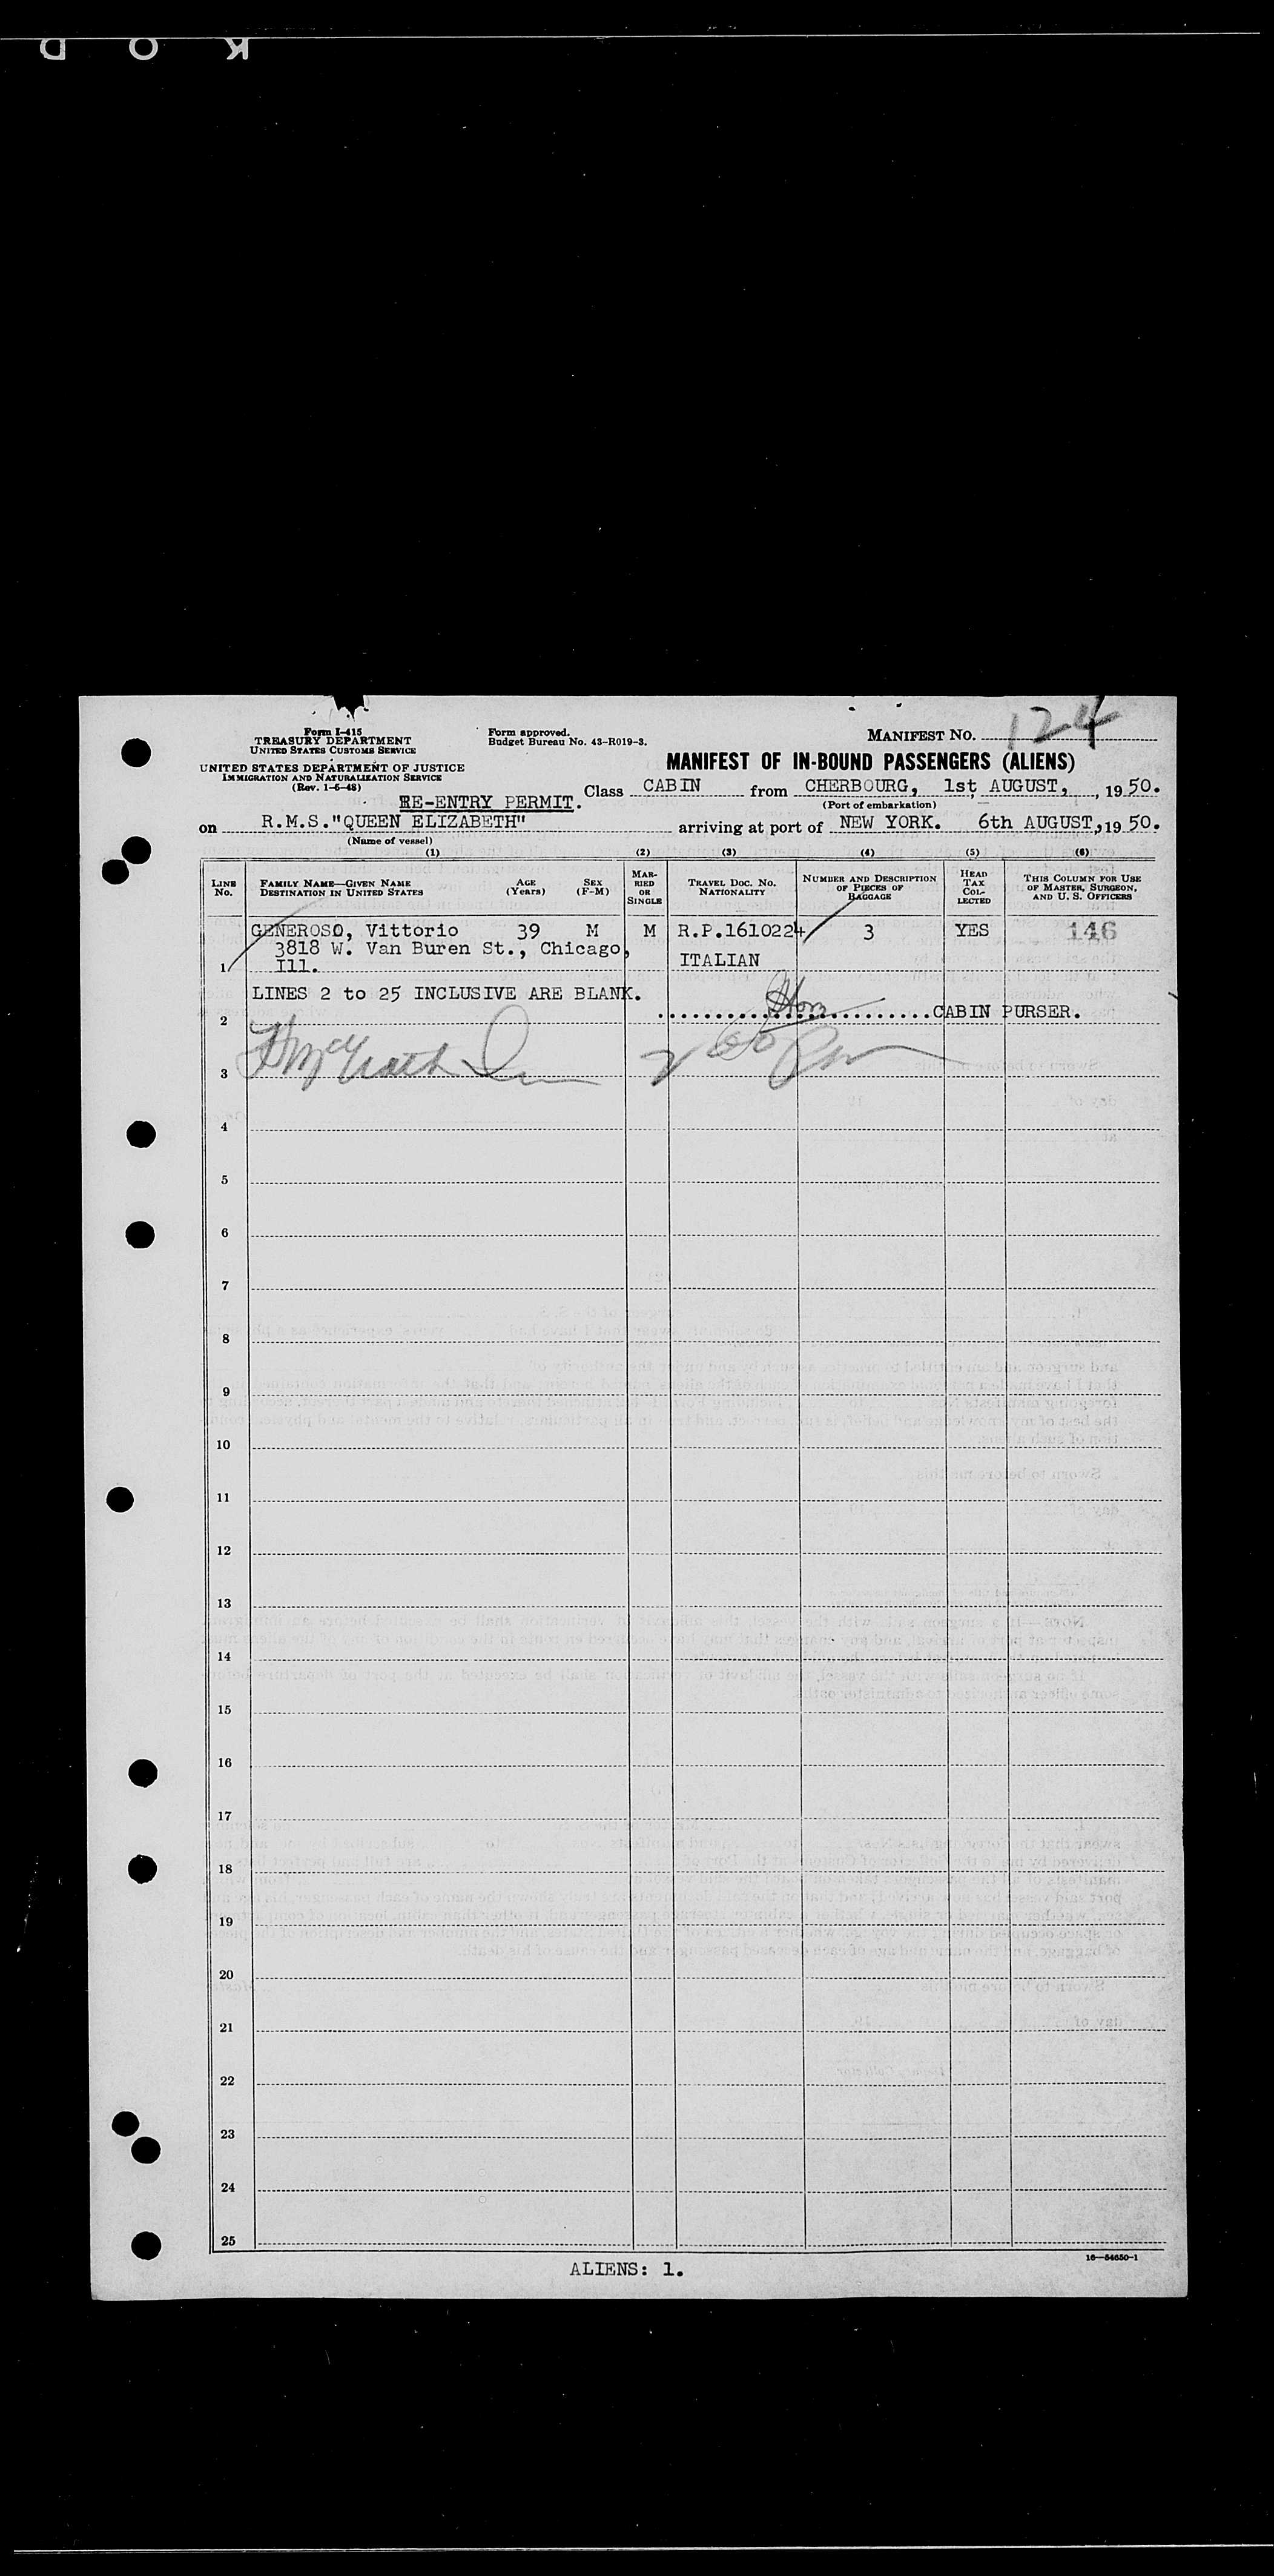 KOD
Form I-415
TREASURY DEPARTMENT
UNITED STATES CUSTOMS SERVICE
UNITED STATES DEPARTMENT OF JUSTICE
IMMIGRATION AND NATURALIZATION SERVICE
(Rev. 1-6-48)
Form approved.
Budget Bureau No. 43-R019-3.
MANIFEST NO. 124
MANIFEST OF IN-BOUND PASSENGERS (ALIENS)
RE-ENTRY PERMIT. Class CABIN from CHERBOURG, 1st, AUGUST, , 1950.
(Port of embarkation)
on R.M.S."QUEEN ELIZABETH" arriving at port of NEW YORK. 6th AUGUST, , 1950.
(Name of vessel)
(1) (2) (3) (4) (5) (6)
LINE No. FAMILY NAME—GIVEN NAME DESTINATION IN UNITED STATES AGE (Years) SEX (F-M) MARRIED OR SINGLE TRAVEL DOC. NO. NATIONALITY NUMBER AND DESCRIPTION OF PIECES OF BAGGAGE HEAD TAX COLLECTED THIS COLUMN FOR USE OF MASTER, SURGEON, AND U. S. OFFICERS
GENEROSO, Vittorio 39 M M R.P.1610224 3 YES 146
3818 W. Van Buren St., Chicago,
1 Ill. ITALIAN
LINES 2 to 25 INCLUSIVE ARE BLANK.
2 ..............................CABIN PURSER.
3 McGrath
4
5
6
7
8
9
10
11
12
13
14
15
16
17
18
19
20
21
22
23
24
25
16—54650-1
ALIENS: 1.